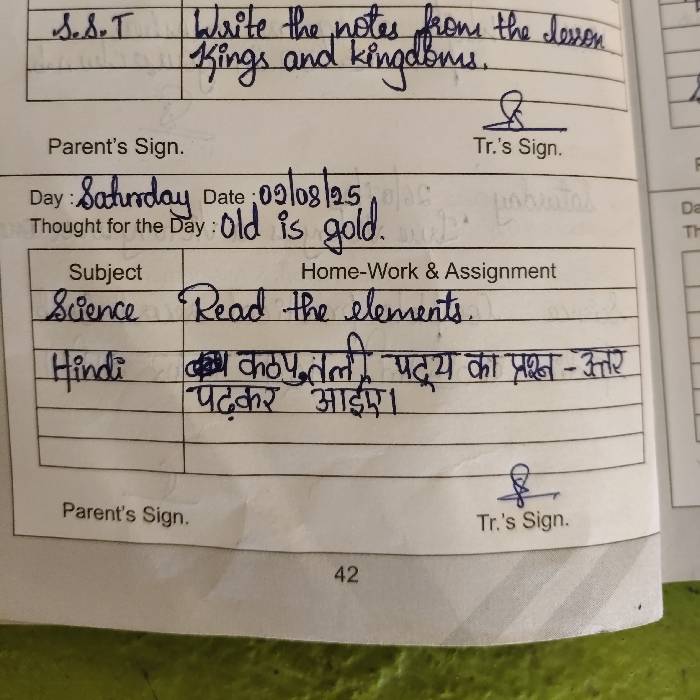 S.S.T Write the notes from the lesson
Kings and kingdoms.
Parent's Sign. Tr.'s Sign.
Day : Saturday Date : 09/08/25
Thought for the Day : Old is gold.
Subject Home-Work & Assignment
Science Read the elements.
Hindi कठपुतली, पद्य का प्रश्न - उत्तर
पढ़कर आईए।
Parent's Sign. Tr.'s Sign.
42